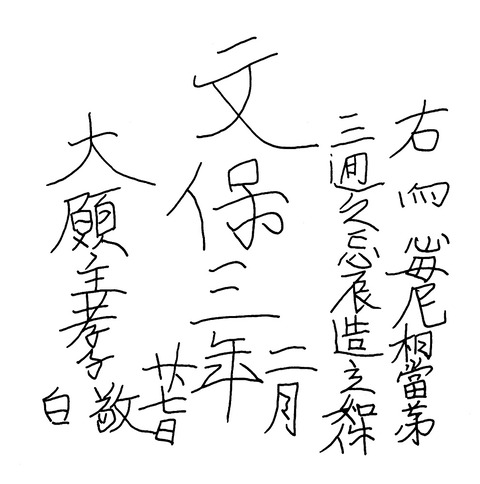 右尼相當第
三廻之忌辰造立如件
文保三年二月
廿七日
大願主孝子敬白